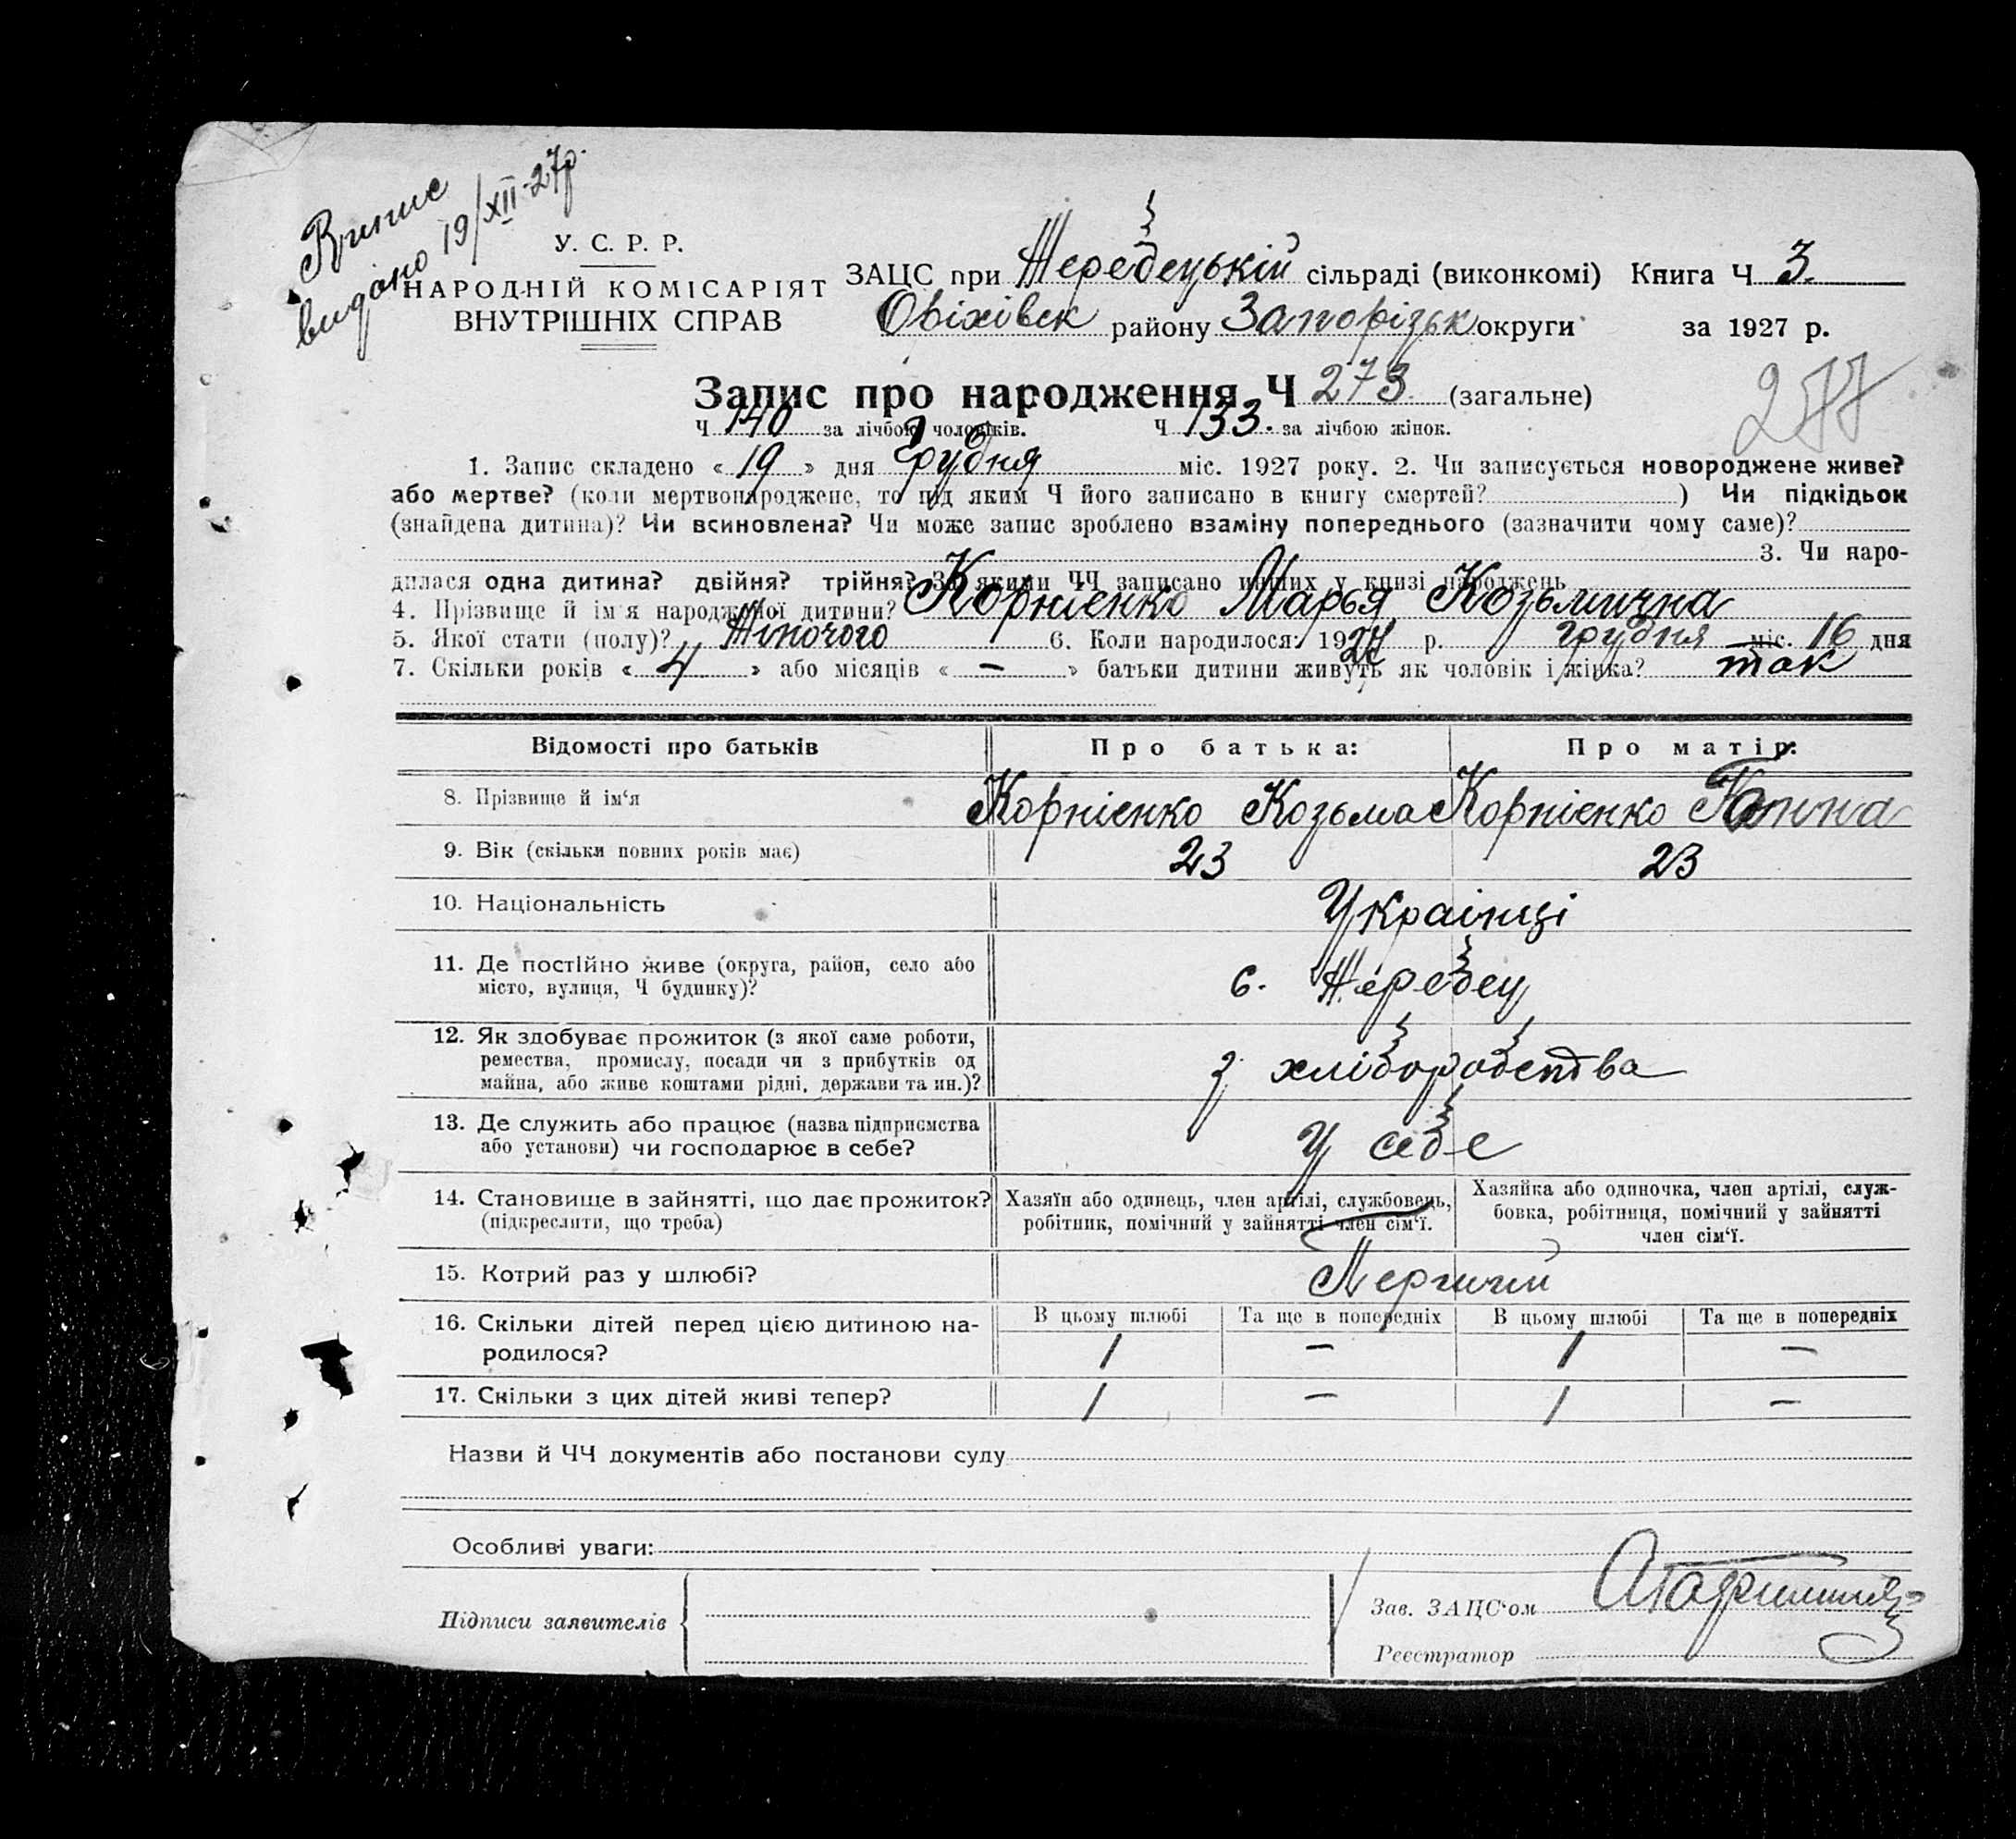 Випис
видано 19/XII-27р.
У. С. Р. Р.
НАРОДНІЙ КОМІСАРІЯТ
ВНУТРІШНІХ СПРАВ
ЗАЦС при Жеребецькій сільраді (виконкомі) Книга Ч 3.
Оріхівськ району Запорізьк округи за 1927 р.
Запис про народження Ч 273 (загальне)
277
Ч 140 за лічбою чоловіків. Ч 133. за лічбою жінок.
1. Запис складено «19» дня Грудня міс. 1927 року. 2. Чи записується новороджене живе?
або мертве? (коли мертвонароджене, то під яким Ч його записано в книгу смертей? ) Чи підкідьок
(знайдена дитина)? Чи всиновлена? Чи може запис зроблено взаміну попереднього (зазначити чому саме)?
3. Чи наро-
дилася одна дитина? двійня? трійня? За якими ЧЧ записано инших у книзі народжень
4. Прізвище й ім'я народженої дитини? Корнієнко Марья Козьмична
5. Якої стати (полу)? Жіночого 6. Коли народилося: 1927 р. грудня міс. 16 дня
7. Скільки років «4» або місяців «—» батьки дитини живуть як чоловік і жінка? так
Відомості про батьків Про батька: Про матір:
8. Прізвище й ім'я Корнієнко Козьма Корнієнко Ганна
9. Вік (скільки повних років має) 23 23
10. Національність Українці
11. Де постійно живе (округа, район, село або
місто, вулиця, Ч будинку)? с. Жеребец
12. Як здобуває прожиток (з якої саме роботи,
ремества, промислу, посади чи з прибутків од
майна, або живе коштами рідні, держави та ин.)? з хліборобства
13. Де служить або працює (назва підприємства
або установи) чи господарює в себе? У себе
14. Становище в зайнятті, що дає прожиток?
(підкреслити, що треба)
Хазяїн або одинець, член артілі, службовець,
робітник, помічний у зайнятті член сім'ї.
Хазяйка або одиночка, член артілі, служ-
бовка, робітниця, помічний у зайнятті
член сім'ї.
15. Котрий раз у шлюбі? Перший
16. Скільки дітей перед цією дитиною на-
родилося?
В цьому шлюбі Та ще в попередніх В цьому шлюбі Та ще в попередніх
1 — 1 —
17. Скільки з цих дітей живі тепер? 1 — 1 —
Назви й ЧЧ документів або постанови суду
Особливі уваги:
Підписи заявителів
Зав. ЗАЦС'ом
Реєстратор